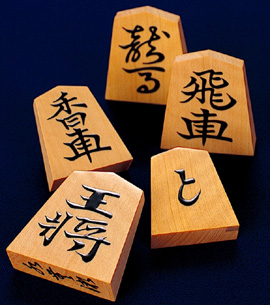 龍馬
飛車
香車
と
王将